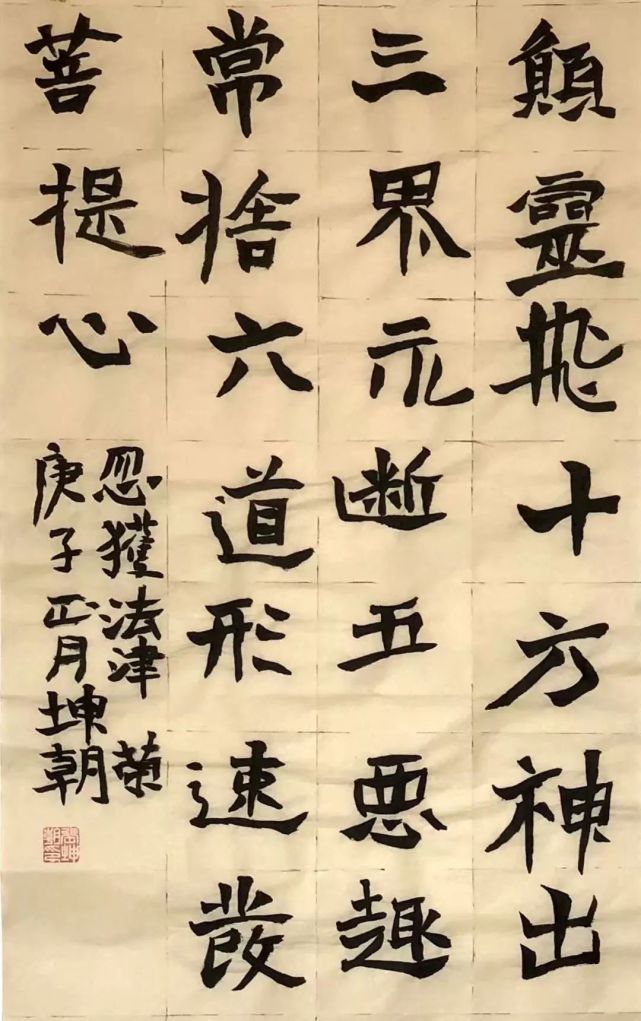 願靈飛十方神出
三界永斷五惡趣
常捨六道形速發
菩提心
忽獲法津 榮
庚子正月坤朝